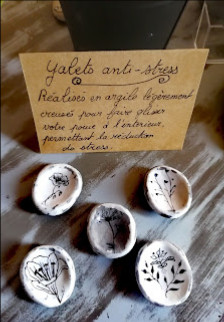 Galets anti-stress
Réalisés en argile légèrement
creusés pour faire glisser
votre pouce à l'intérieur,
permettant la réduction
du stress.